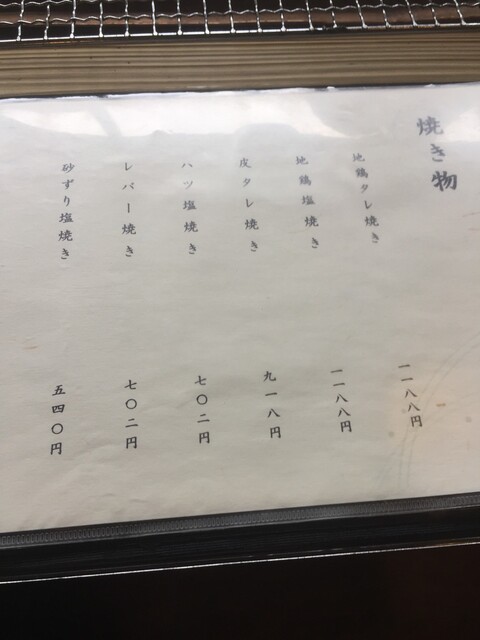 焼き物
地鶏タレ焼き
一一八八円
地鶏塩焼き
一一八八円
皮タレ焼き
九一八円
ハツ塩焼き
七〇二円
レバー焼き
七〇二円
砂ずり塩焼き
五四〇円